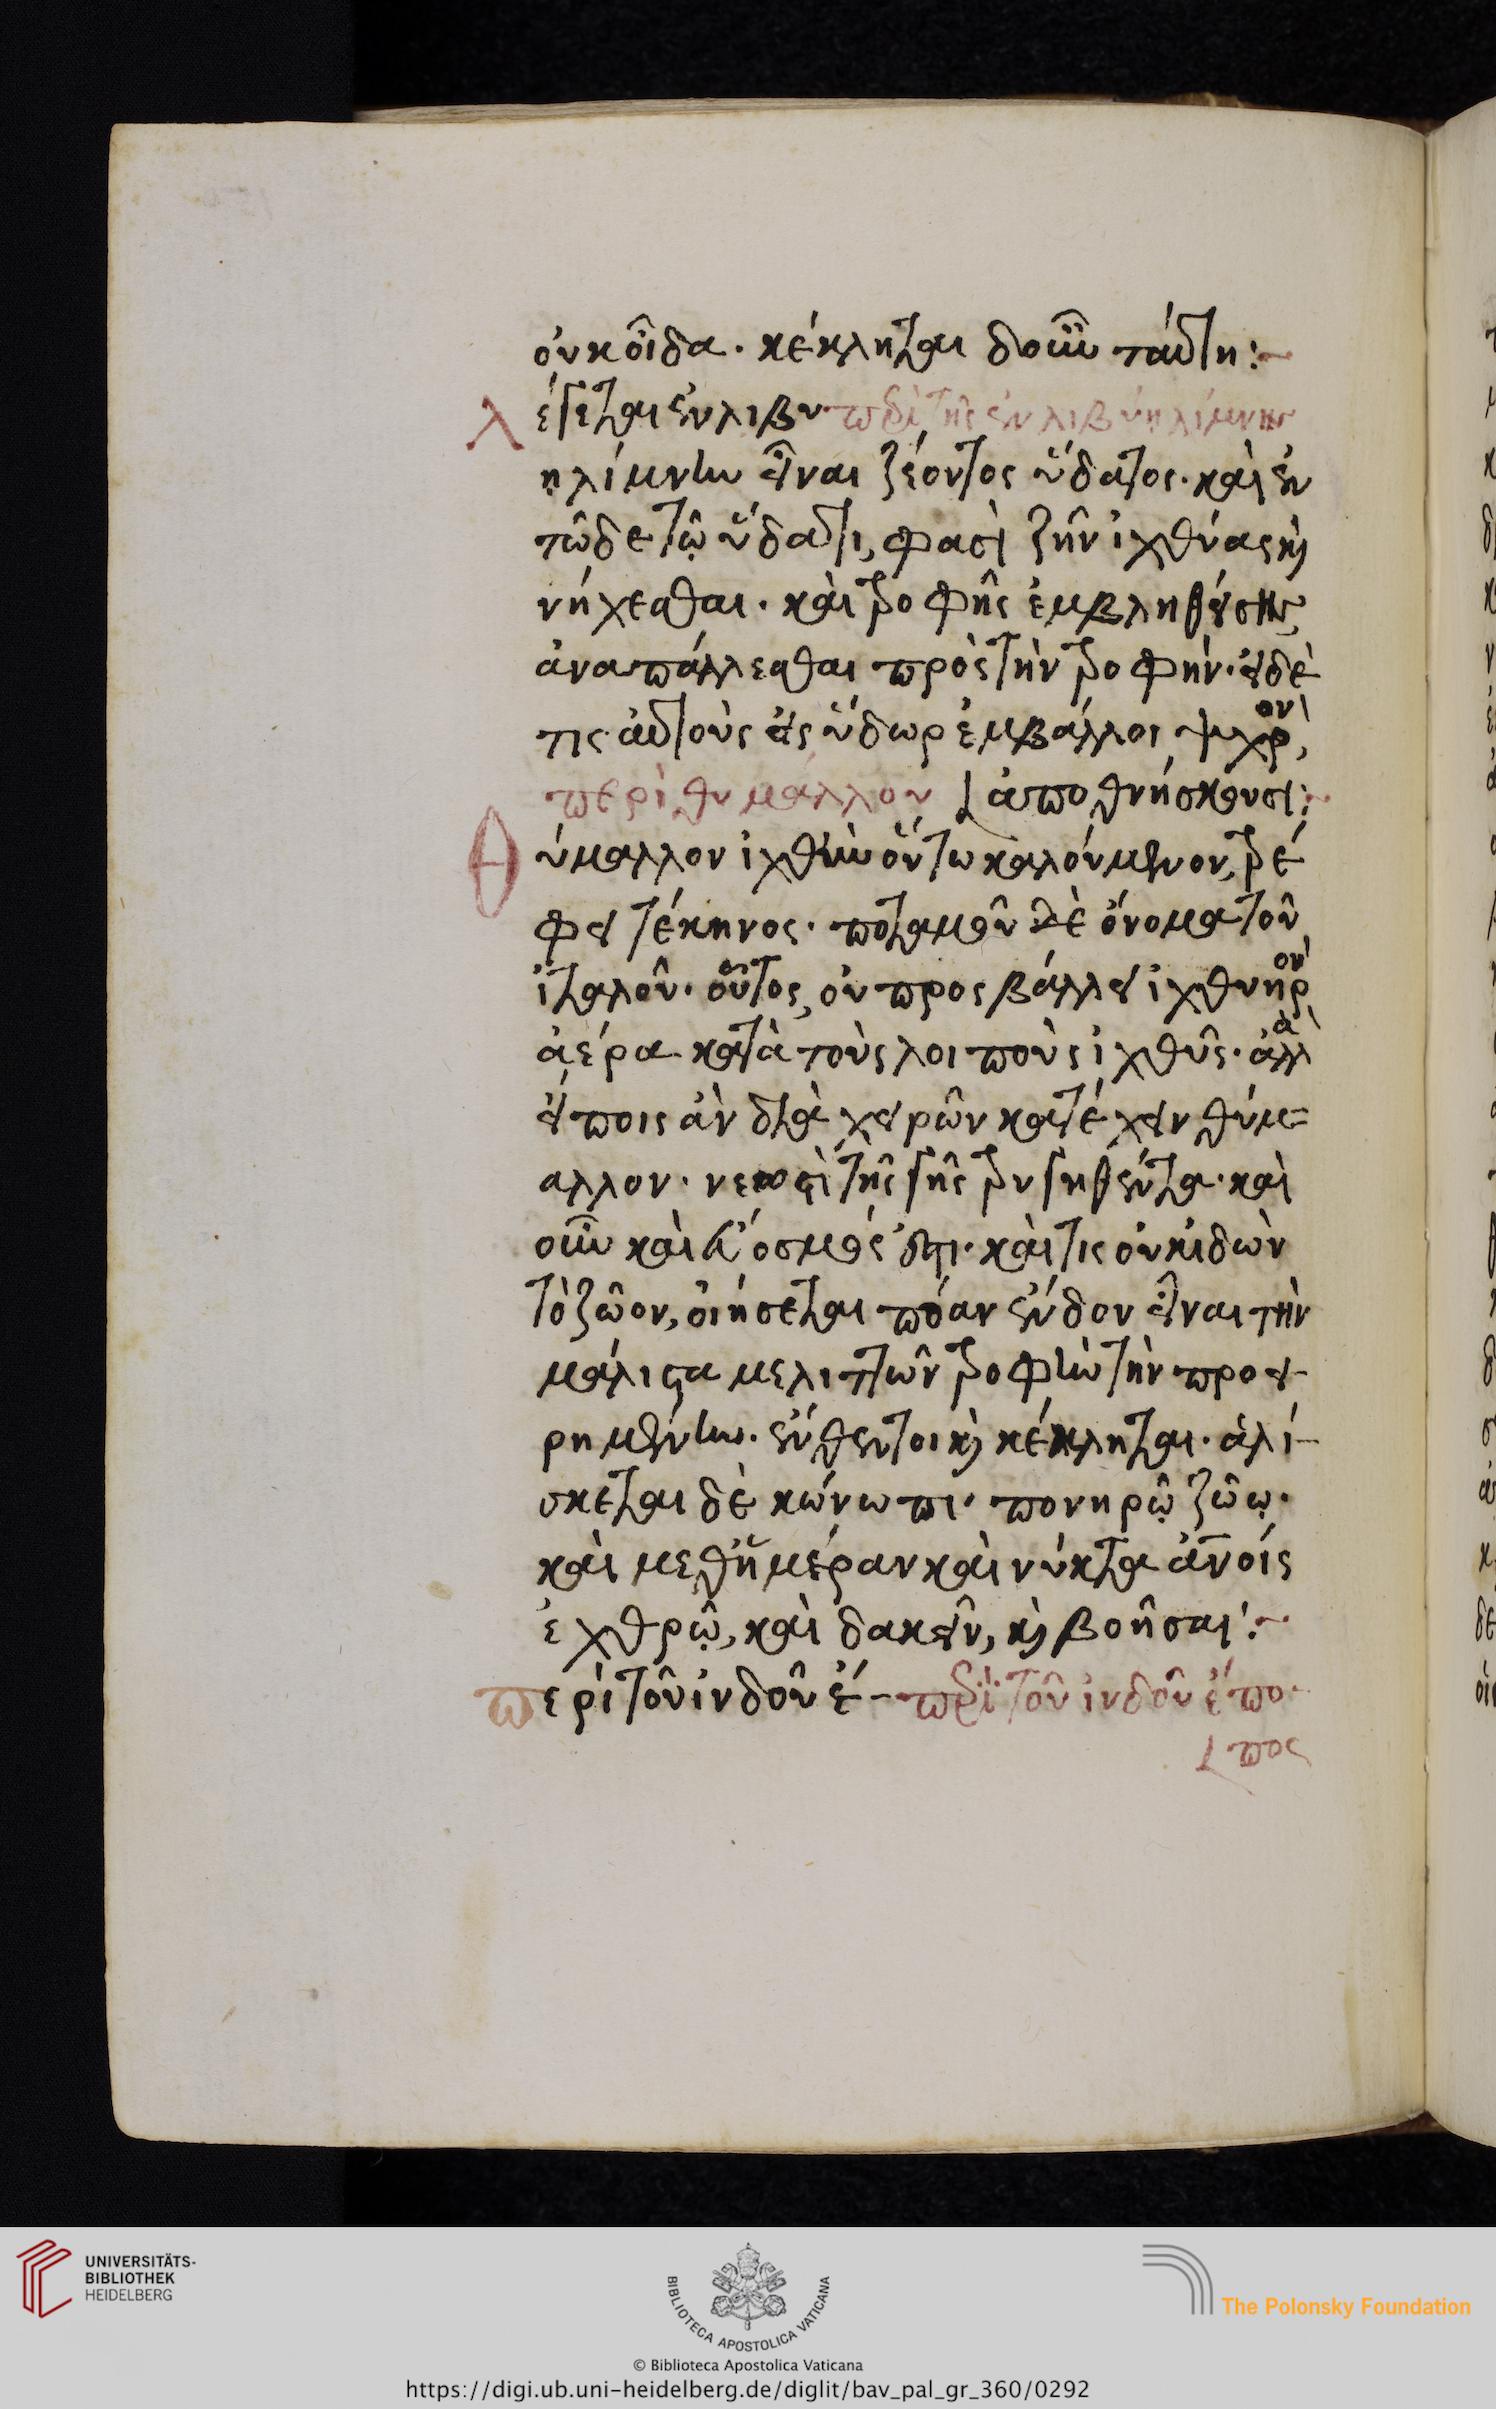 οὐκ οἶδα. κέκληται δοῦν ταύτη:~
λ έγεται ἐν λιβυ περὶ τῆς ἐν λιβύῃ λίμνης
ῃ λίμνην εἶναι ζέοντος ὕδατος. καὶ ἐν
τῶδε τῷ ὕδατι, φασὶ ζῆν ἰχθύας καὶ
νήχεσθαι. καὶ τροφῆς ἐμβληθείσης
ἀναπάλλεσθαι πρὸς τὴν τροφήν. εἰ δέ
τις αὐτοὺς εἰς ὕδωρ ἐμβάλλοι ψυχρόν,
περὶ θυμάλλου ἀποθνήσκουσι:~
Θ ύμαλλον ἰχθὺν οὕτω καλούμενον, τρέ
φει τέκηνος. ποταμοῦ δὲ ὄνομα τοῦ
ἰταλοῦ. οὗτος οὐ προσβάλλει ἰχθυηρὸν
ἀέρα κατὰ τοὺς λοιποὺς ἰχθῦς. ἀλλὰ
εἴποις ἂν διὰ χειρῶν κατέχειν θύμ=
αλλον. νεωστὶ τῆς γῆς τρυγηθέντα. καὶ
οὖν καὶ εὔοσμός ἐστι. καί τις οὐκ ἰδὼν
τὸ ζῶον, οἰήσεται πόαν ἔνδον εἶναι τὴν
μάλιστα μελιττῶν τροφὴν τὴν προει-
ρημένην. ἔνθεν τοι καὶ κέκληται. ἁλί-
σκεται δὲ κώνωπι. πονηρῷ ζώῳ.
καὶ μεθ' ἡμέραν καὶ νύκτα ἀνοις
ἐχθρῷ, καὶ δακεῖν, καὶ βοῆσαι:~
π ερὶ τοῦ ἰνδοῦ ἔ- περὶ τοῦ ἰνδοῦ ἔπο-
πος
UNIVERSITÄTS-
BIBLIOTHEK
HEIDELBERG
BIBLIOTECA APOSTOLICA VATICANA
The Polonsky Foundation
© Biblioteca Apostolica Vaticana
https://digi.ub.uni-heidelberg.de/diglit/bav_pal_gr_360/0292